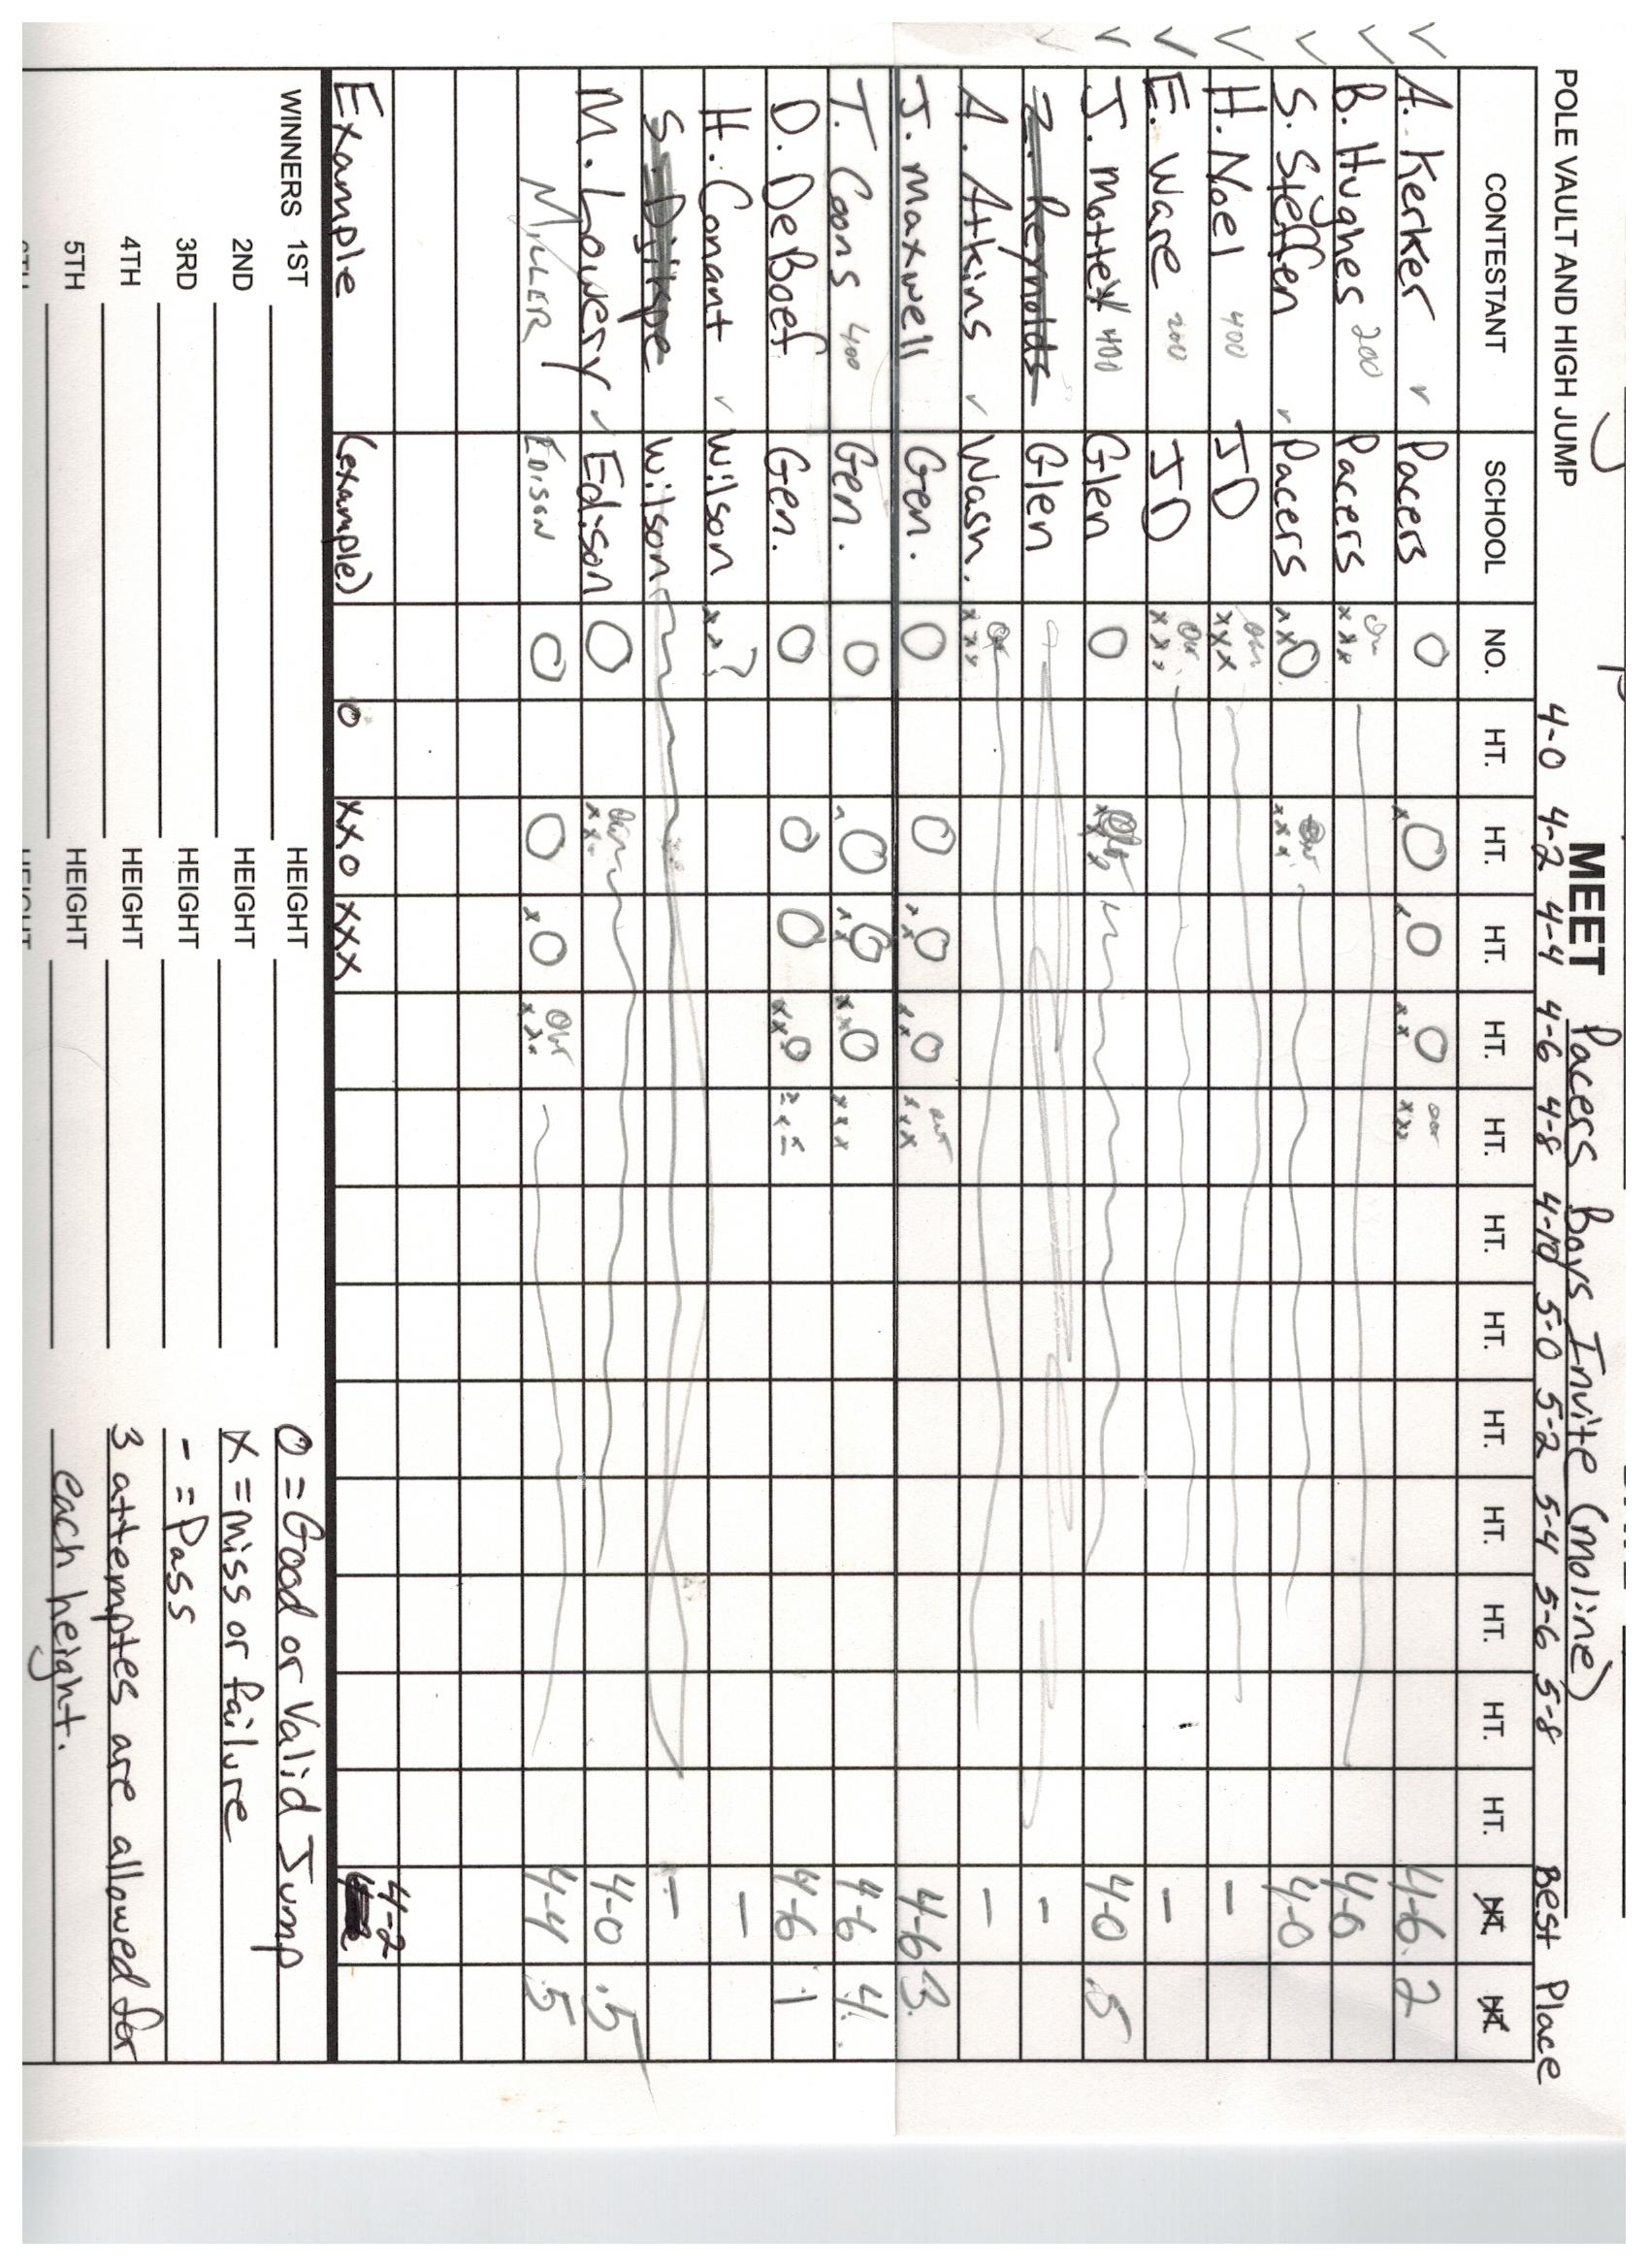 MEET Pacers Boys Invite (moline)
POLE VAULT AND HIGH JUMP 4-0 4-2 4-4 4-6 4-8 4-10 5-0 5-2 5-4 5-6 5-8 Best Place
CONTESTANT SCHOOL NO. HT. HT. HT. HT. HT. HT. HT. HT. HT. HT. HT. HT. HT. HT.
✓ A. Kerker ✓ Pacers O xO xO xxO out xxx 4-6 2
✓ B. Hughes 200 Pacers xxx 4-0
✓ S. Steffen ✓ Pacers xxO xxx 4-0
✓ H. Noel 400 JD out xxx -
✓ E. Ware 200 JD out xxx -
✓ J. Mottet 400 Glen O xxx 4-0 .5
✓ Z. Reynolds Glen -
A. Atkins ✓ Wash. xxx -
J. Maxwell Gen. O O xxO xxO out xxx 4-6 3.
T. Coons 400 Gen. O xO xxO xxO xxx 4-6 4.
D. DeBoef Gen. O O O xxO xxx 4-6 1
H. Conant ✓ Wilson xx? -
Wilson -
M. Lowery ✓ Edison O out xxx 4-0 .5
MILLER EDISON O O xO out xxx 4-4 5
4-2
Example (example) O XXO XXX
WINNERS 1ST HEIGHT O = Good or Valid Jump
2ND HEIGHT X = miss or failure
3RD HEIGHT - = Pass
4TH HEIGHT 3 attemptes are allowed for
5TH HEIGHT each height.
HEIGHT